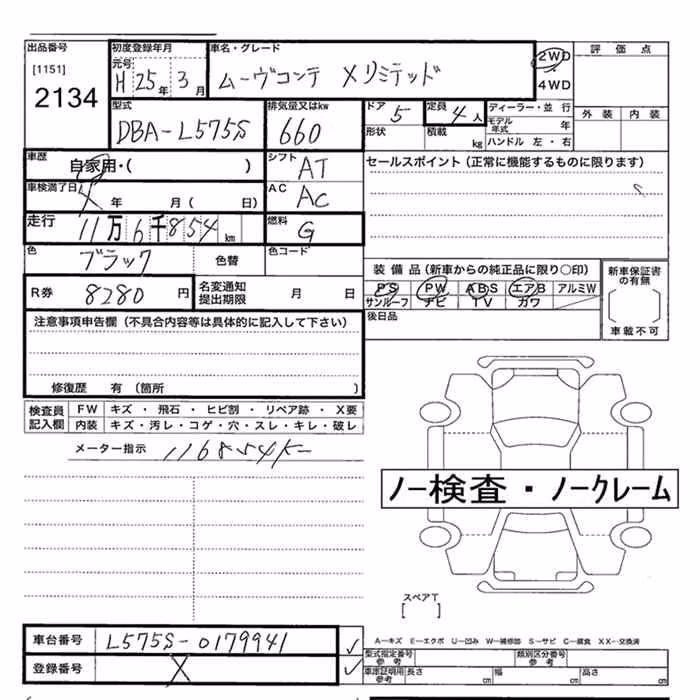 出品番号
[1151]
2134
初度登録年月
元号
H 25年 3月
車名・グレード
ムーヴコンテ Xリミテッド
2WD
4WD
評価点
外装 内装
型式
DBA-L575S
排気量又はkw
660
ドア 5
形状
定員 4人
積載 kg
ディーラー・並行
モデル年式 年
ハンドル 左・右
車歴
自家用・( )
シフト AT
車検満了日
X 年 月( 日)
AC AC
走行
11万6千854km
燃料 G
色
ブラック
色替
色コード
セールスポイント(正常に機能するものに限ります)
R券 8280円
名変通知
提出期限 月 日
装備品(新車からの純正品に限り○印)
PS PW ABS エアB アルミW
サンルーフ ナビ TV カワ
新車保証書
の有無
車載不可
後日品
注意事項申告欄(不具合内容等は具体的に記入して下さい)
修復歴 有(箇所 )
検査員
記入欄
FW キズ・飛石・ヒビ割・リペア跡・X要
内装 キズ・汚レ・コゲ・穴・スレ・キレ・破レ
メーター指示 116854K
ノー検査・ノークレーム
スペアT
[ ]
車台番号 L575S-0179941
登録番号 X
A-キズ E-エクボ U-凹み W-補修跡 S-サビ C-腐食 XX-交換済
型式指定番号
参考
類別区分番号
参考
車庫証明用
参考
長さ cm 幅 cm 高さ cm